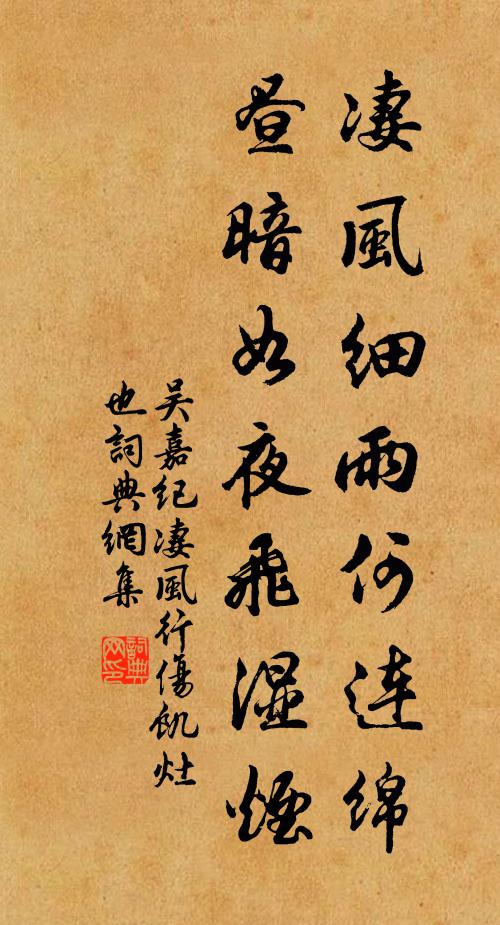 凄風細雨何連綿
昼暗如夜飛湿煙
吴嘉紀凄風行傷飢灶
也詞典網集
詞典
网印